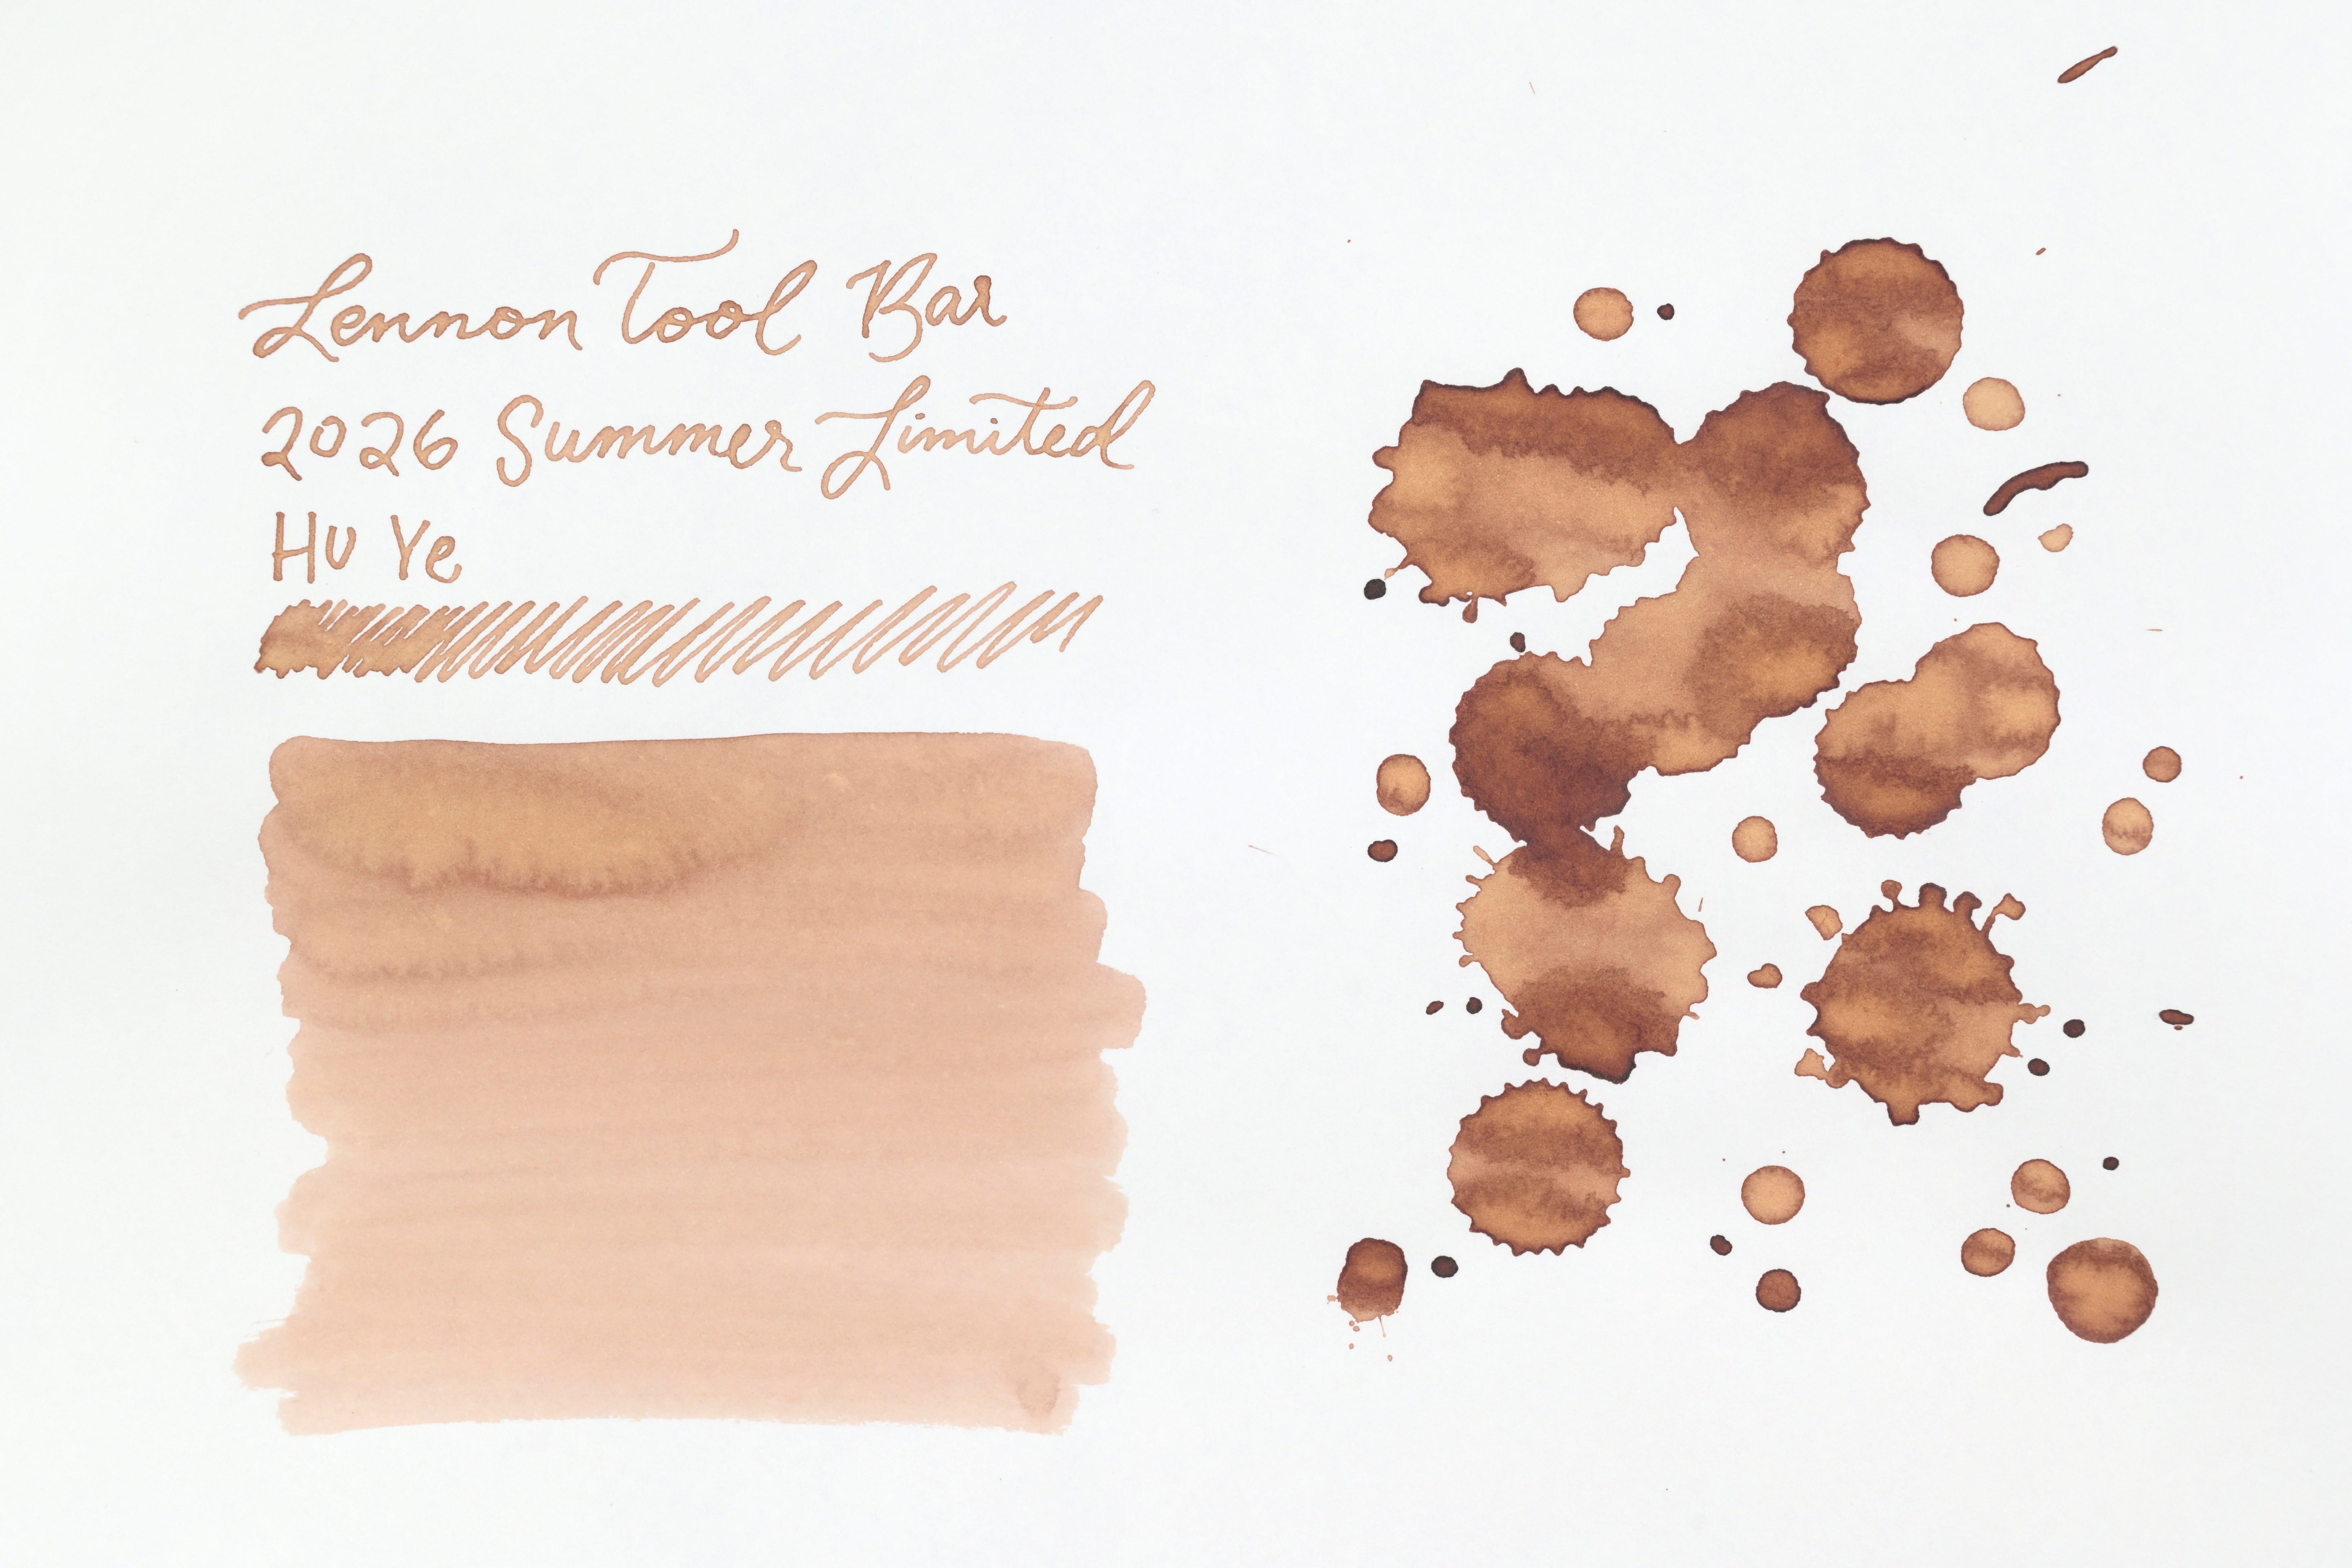 Lennon Tool Bar
2026 Summer Limited
Hu Ye